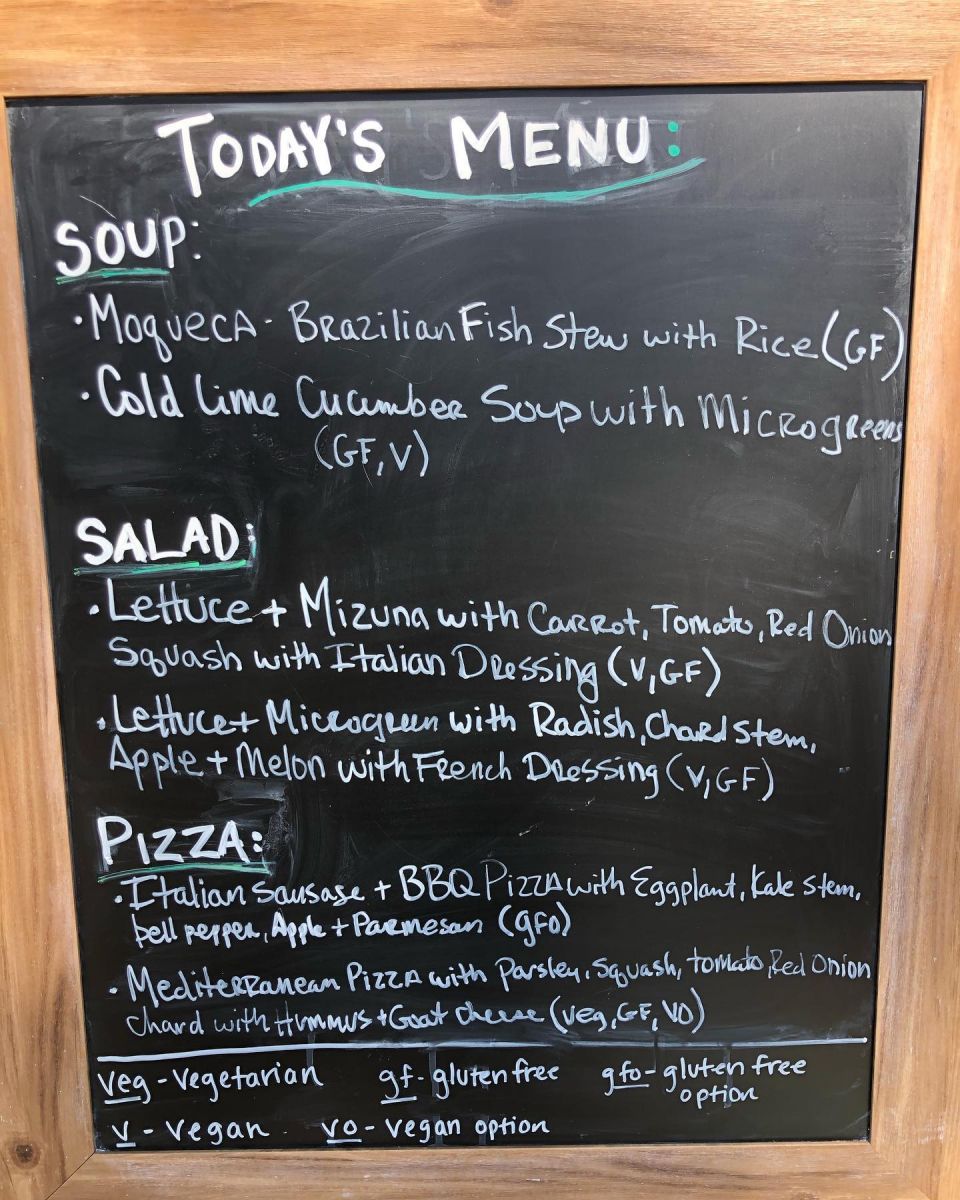 TODAY'S MENU:
SOUP:
• Moqueca - Brazilian Fish Stew with Rice (GF)
• Cold Lime Cucumber Soup with Microgreens
(GF, V)
SALAD:
• Lettuce + Mizuna with Carrot, Tomato, Red Onion
Squash with Italian Dressing (V, GF)
• Lettuce + Microgreen with Radish, Chard Stem,
Apple + Melon with French Dressing (V, GF)
PIZZA:
• Italian Sausage + BBQ Pizza with Eggplant, Kale Stem,
bell pepper, Apple + Parmesan (gfo)
• Mediterranean Pizza with Parsley, Squash, tomato, Red Onion
Chard with Hummus + Goat Cheese (veg, GF, VO)
veg - vegetarian gf - gluten free gfo - gluten free
option
v - vegan vo - vegan option